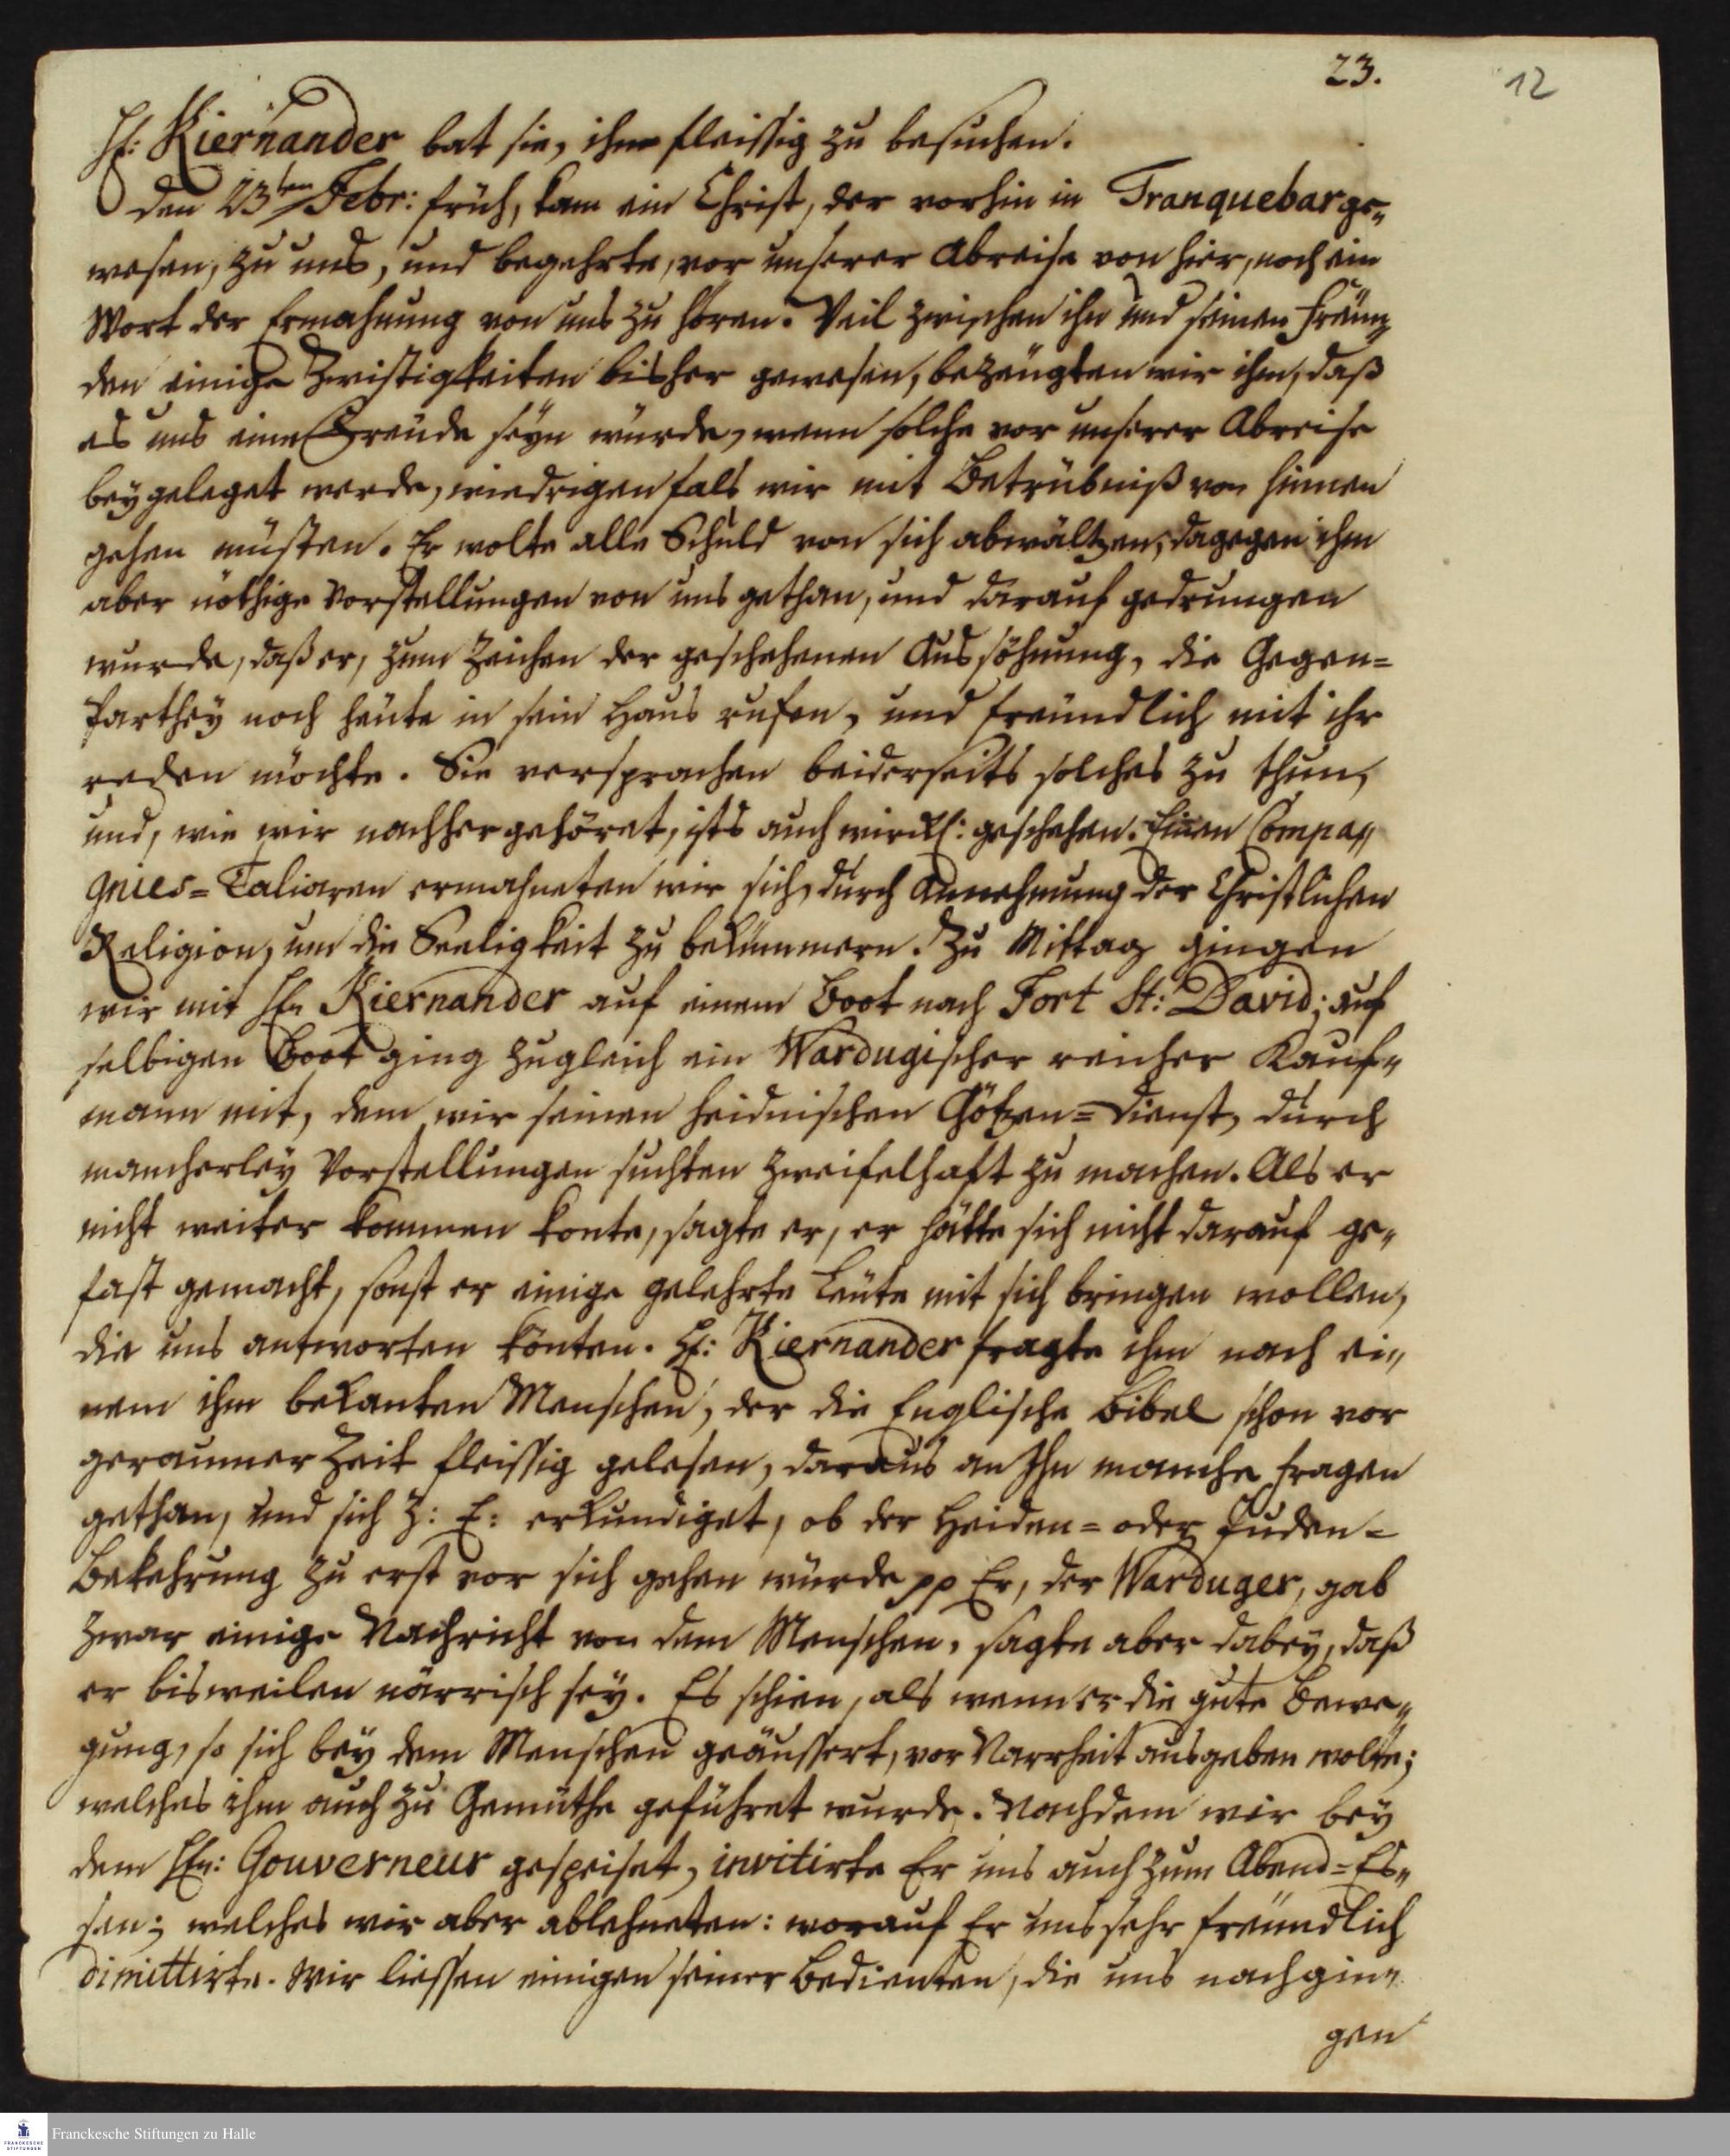 23.
12
Hr: Kiernander bat sie, ihn fleissig zu besuchen.
Den 23ten Febr: früh, kam ein Christ, der vorhin in Tranquebar ge-
wesen, zu uns, und begehrte, vor unserer Abreise von hier, noch ein
Wort der Ermahnung von uns zu hören. Weil zwischen ihn und seinen Freün-
den einige Zwistigkeiten bisher gewesen, bezeügten wir ihm, daß
es uns eine Freüde seyn würde, wenn solche vor unserer Abreise
beygeleget werde, wiedrigenfals wir mit Betrübniß von hinnen
gehen müsten. Er wolte alle Schuld von sich abwältzen; dagegen ihm
aber nöthige Vorstellungen von uns gethan, und darauf gedrungen
wurde, daß er, zum Zeichen der geschehenen Aussöhnung, die Gegen=
Parthey noch heüte in sein Haus rufen, und freündlich mit ihr
reden möchte. Sie versprachen beiderseits solches zu thun,
und, wie wir nachher gehöret, ists auch würckl: geschehen. Einen Compa-
gnies=Taliaren ermahneten wir sich, durch Annehmung der Christlichen
Religion, um die Seeligkeit zu bekümmern. Zu Mittag gingen
wir mit Hn Kiernander auf einem Boot nach Fort St: David; auf
selbigen Boot ging zugleich ein Wardugischer reicher Kauf-
mann mit, dem wir seinen heidnischen Götzen=Dienst, durch
mancherley Vorstellungen suchten zweifelhaft zu machen. Als er
nicht weiter kommen konte, sagte er, er hätte sich nicht darauf ge-
fast gemacht, sonst er einige gelehrte Leüte mit sich bringen wollen,
die uns antworten könten. Hr: Kiernander fragte ihm nach ei-
nem ihm bekanten Menschen, der die Englische Bibel schon vor
geraumer Zeit fleissig gelesen, daraus an Ihn manche Fragen
gethan, und sich z: E: erkundiget, ob der Heiden= oder Juden=
Bekehrung zu erst vor sich gehen würde pp Er, der Warduger, gab
zwar einige Nachricht von dem Menschen, sagte aber dabey, daß
er bisweilen närrisch sey. Es schien, als wenn er die gute Bewe-
gung, so sich bey dem Menschen geäussert, vor Narrheit ausgeben wolte;
welches ihm auch zu Gemüthe geführet wurde. Nachdem wir bey
dem Hn: Gouverneur gespeiset, invitirte Er uns auch zum Abend=Es-
sen; welches wir aber ablehneten: worauf Er uns sehr freündlich
dimittirte. Wir liessen einigen seiner Bedienten, die uns nachgin-
gen
FRANCKESCHE STIFTUNGEN
Franckesche Stiftungen zu Halle